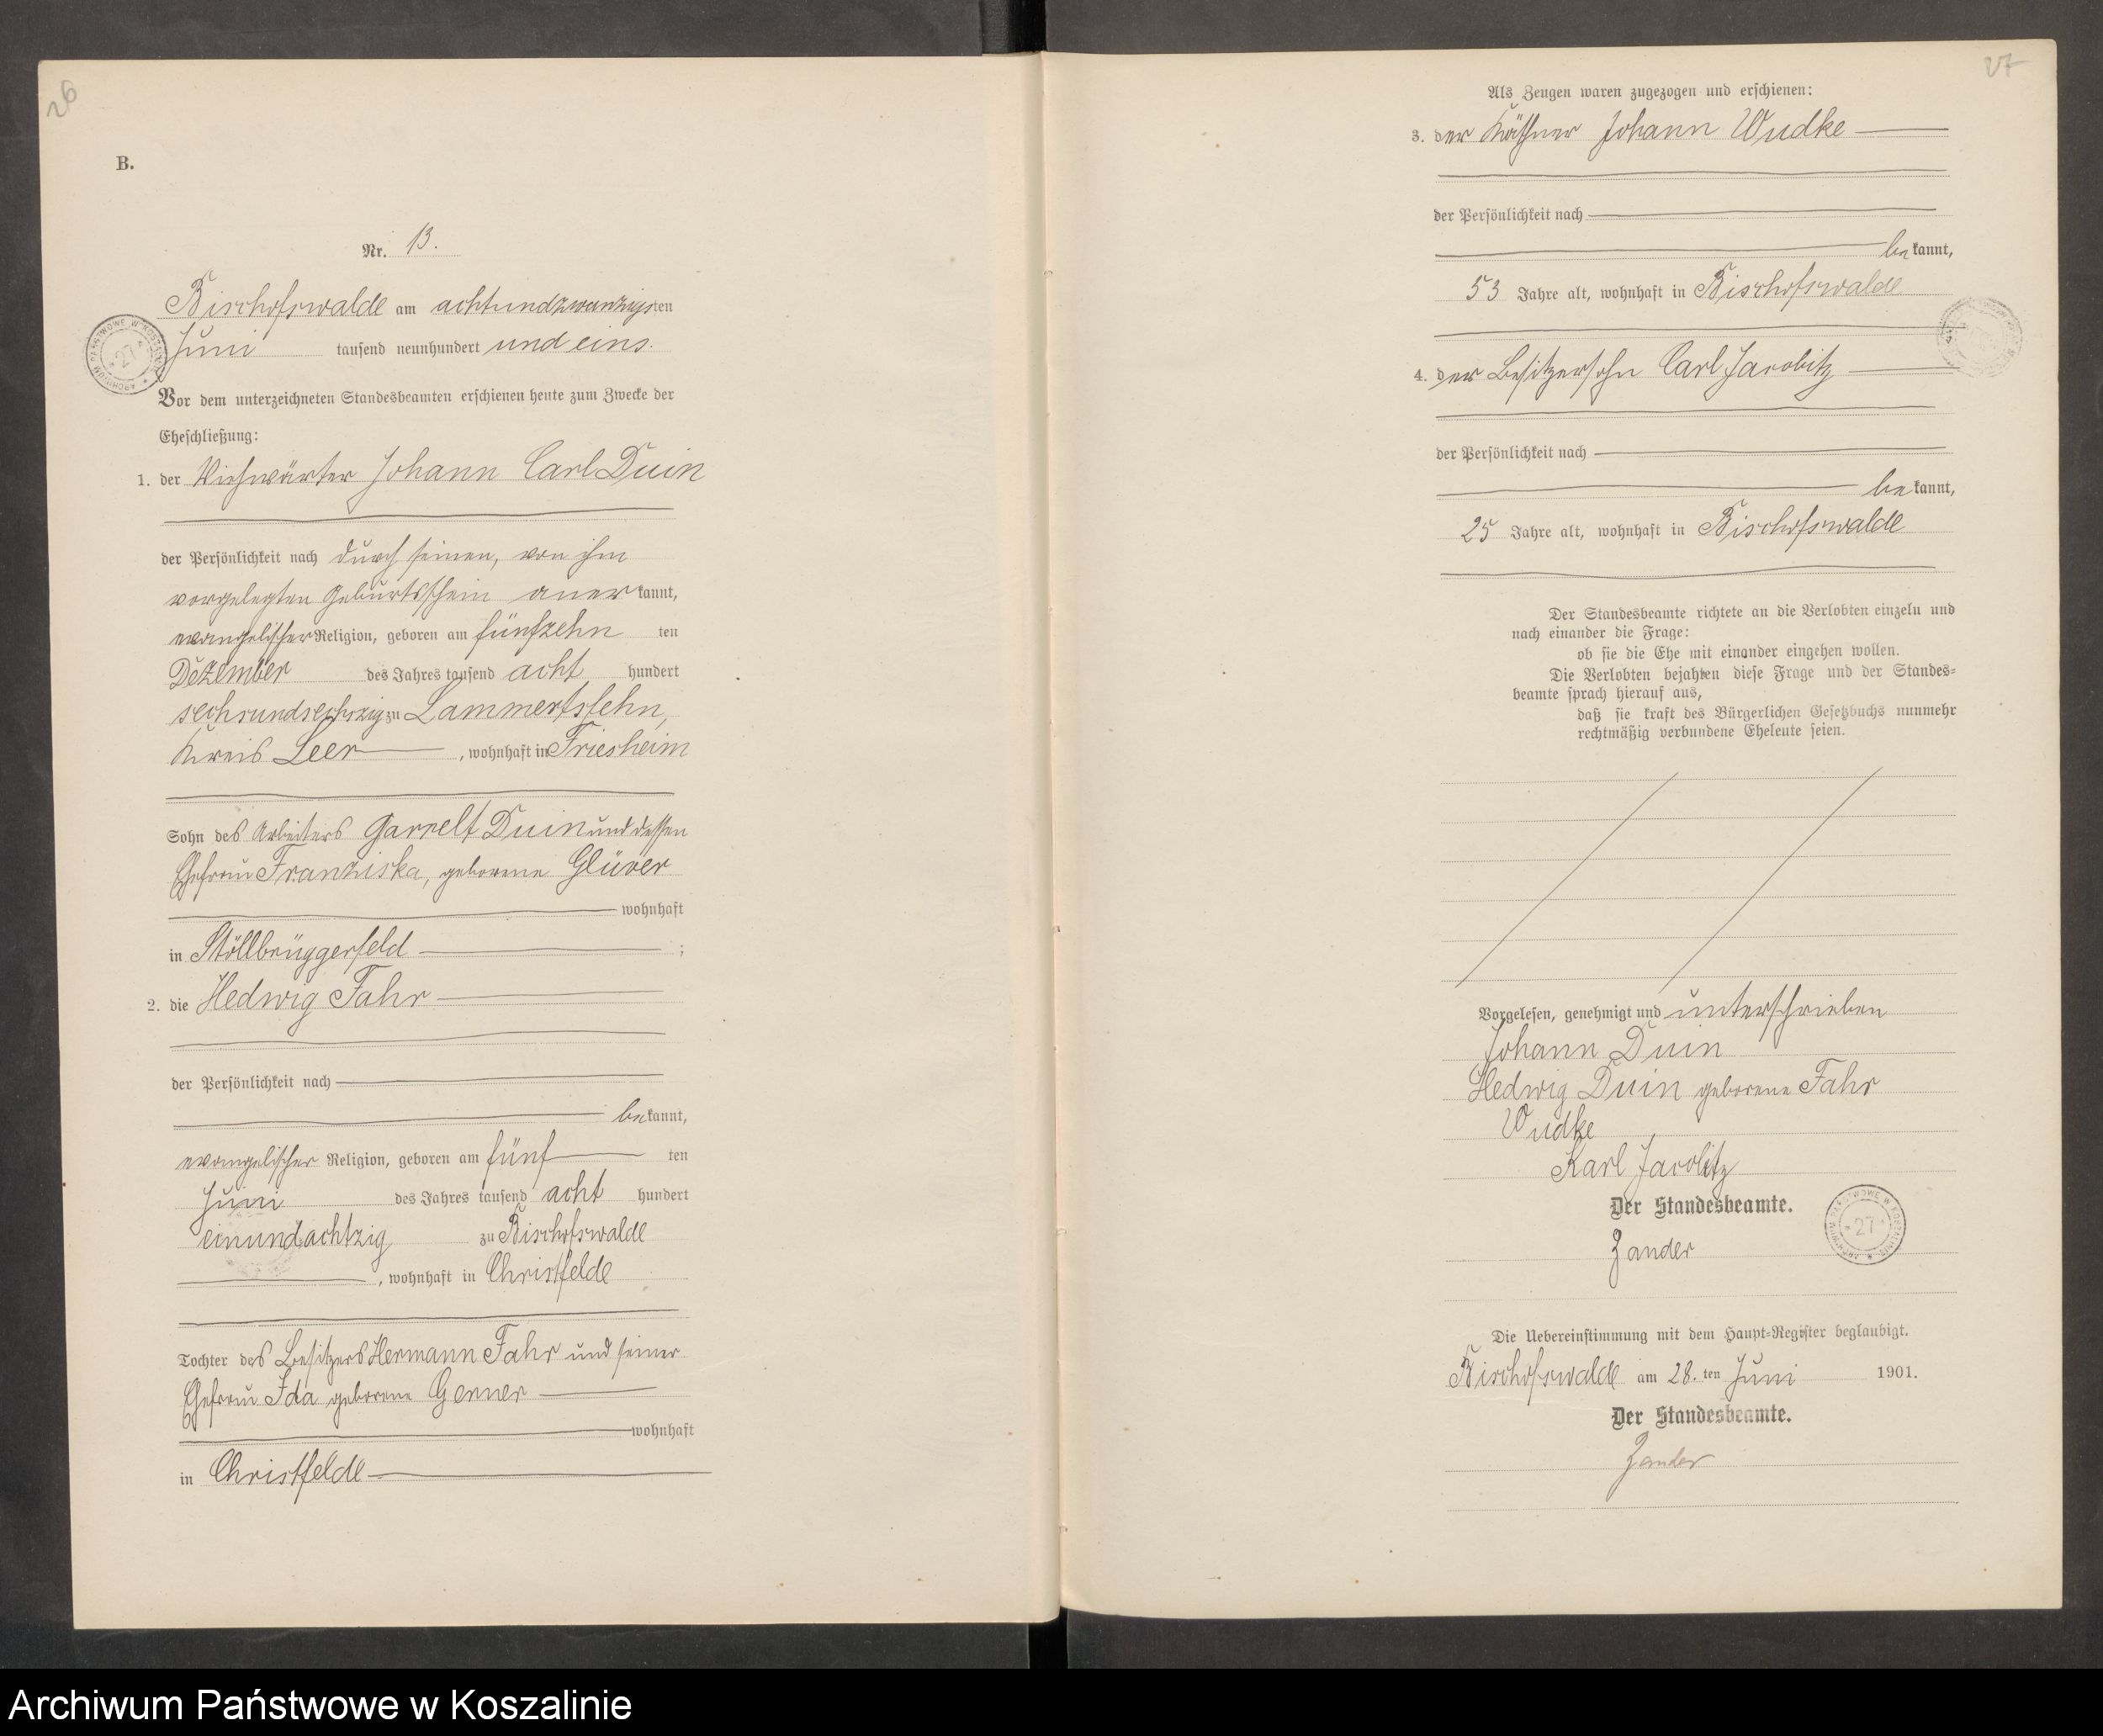 26
B.
Nr. 13.
Bischofswalde am achtundzwanzigsten
Juni tausend neunhundert und eins.
Vor dem unterzeichneten Standesbeamten erschienen heute zum Zwecke der
Eheschließung:
1. der Viehwärter Johann Carl Duin
der Persönlichkeit nach durch seinen, von ihm
vorgelegten Geburtsschein anerkannt,
evangelischer Religion, geboren am fünfzehn ten
Dezember des Jahres tausend acht hundert
sechsundsechszig zu Lammertsfehn,
Kreis Leer, wohnhaft in Friesheim
Sohn des Arbeiters Garrelt Duin und dessen
Ehefrau Franziska, geborene Glüver
wohnhaft
in Möllbrüggerfeld ;
2. die Hedwig Fahr
der Persönlichkeit nach
bekannt,
evangelischer Religion, geboren am fünf ten
Juni des Jahres tausend acht hundert
einundachtzig zu Bischofswalde
, wohnhaft in Christfelde
Tochter des Besitzers Hermann Fahr und seiner
Ehefrau Ida geborene Genner
wohnhaft
in Christfelde
ARCHIWUM PAŃSTWOWE W KOSZALINIE * 27 *
27
Als Zeugen waren zugezogen und erschienen:
3. der Käthner Johann Wudke
der Persönlichkeit nach
bekannt,
53 Jahre alt, wohnhaft in Bischofswalde
4. der Besitzersohn Carl Jacobitz
der Persönlichkeit nach
bekannt,
25 Jahre alt, wohnhaft in Bischofswalde
Der Standesbeamte richtete an die Verlobten einzeln und
nach einander die Frage:
ob sie die Ehe mit einander eingehen wollen.
Die Verlobten bejahten diese Frage und der Standes-
beamte sprach hierauf aus,
daß sie kraft des Bürgerlichen Gesetzbuchs nunmehr
rechtmäßig verbundene Eheleute seien.
Vorgelesen, genehmigt und unterschrieben
Johann Duin
Hedwig Duin geborene Fahr
Wudke
Karl Jacobitz
Der Standesbeamte.
Zander
ARCHIWUM PAŃSTWOWE W KOSZALINIE * 27 *
Die Uebereinstimmung mit dem Haupt-Register beglaubigt.
Bischofswalde am 28. ten Juni 1901.
Der Standesbeamte.
Zander
Archiwum Państwowe w Koszalinie